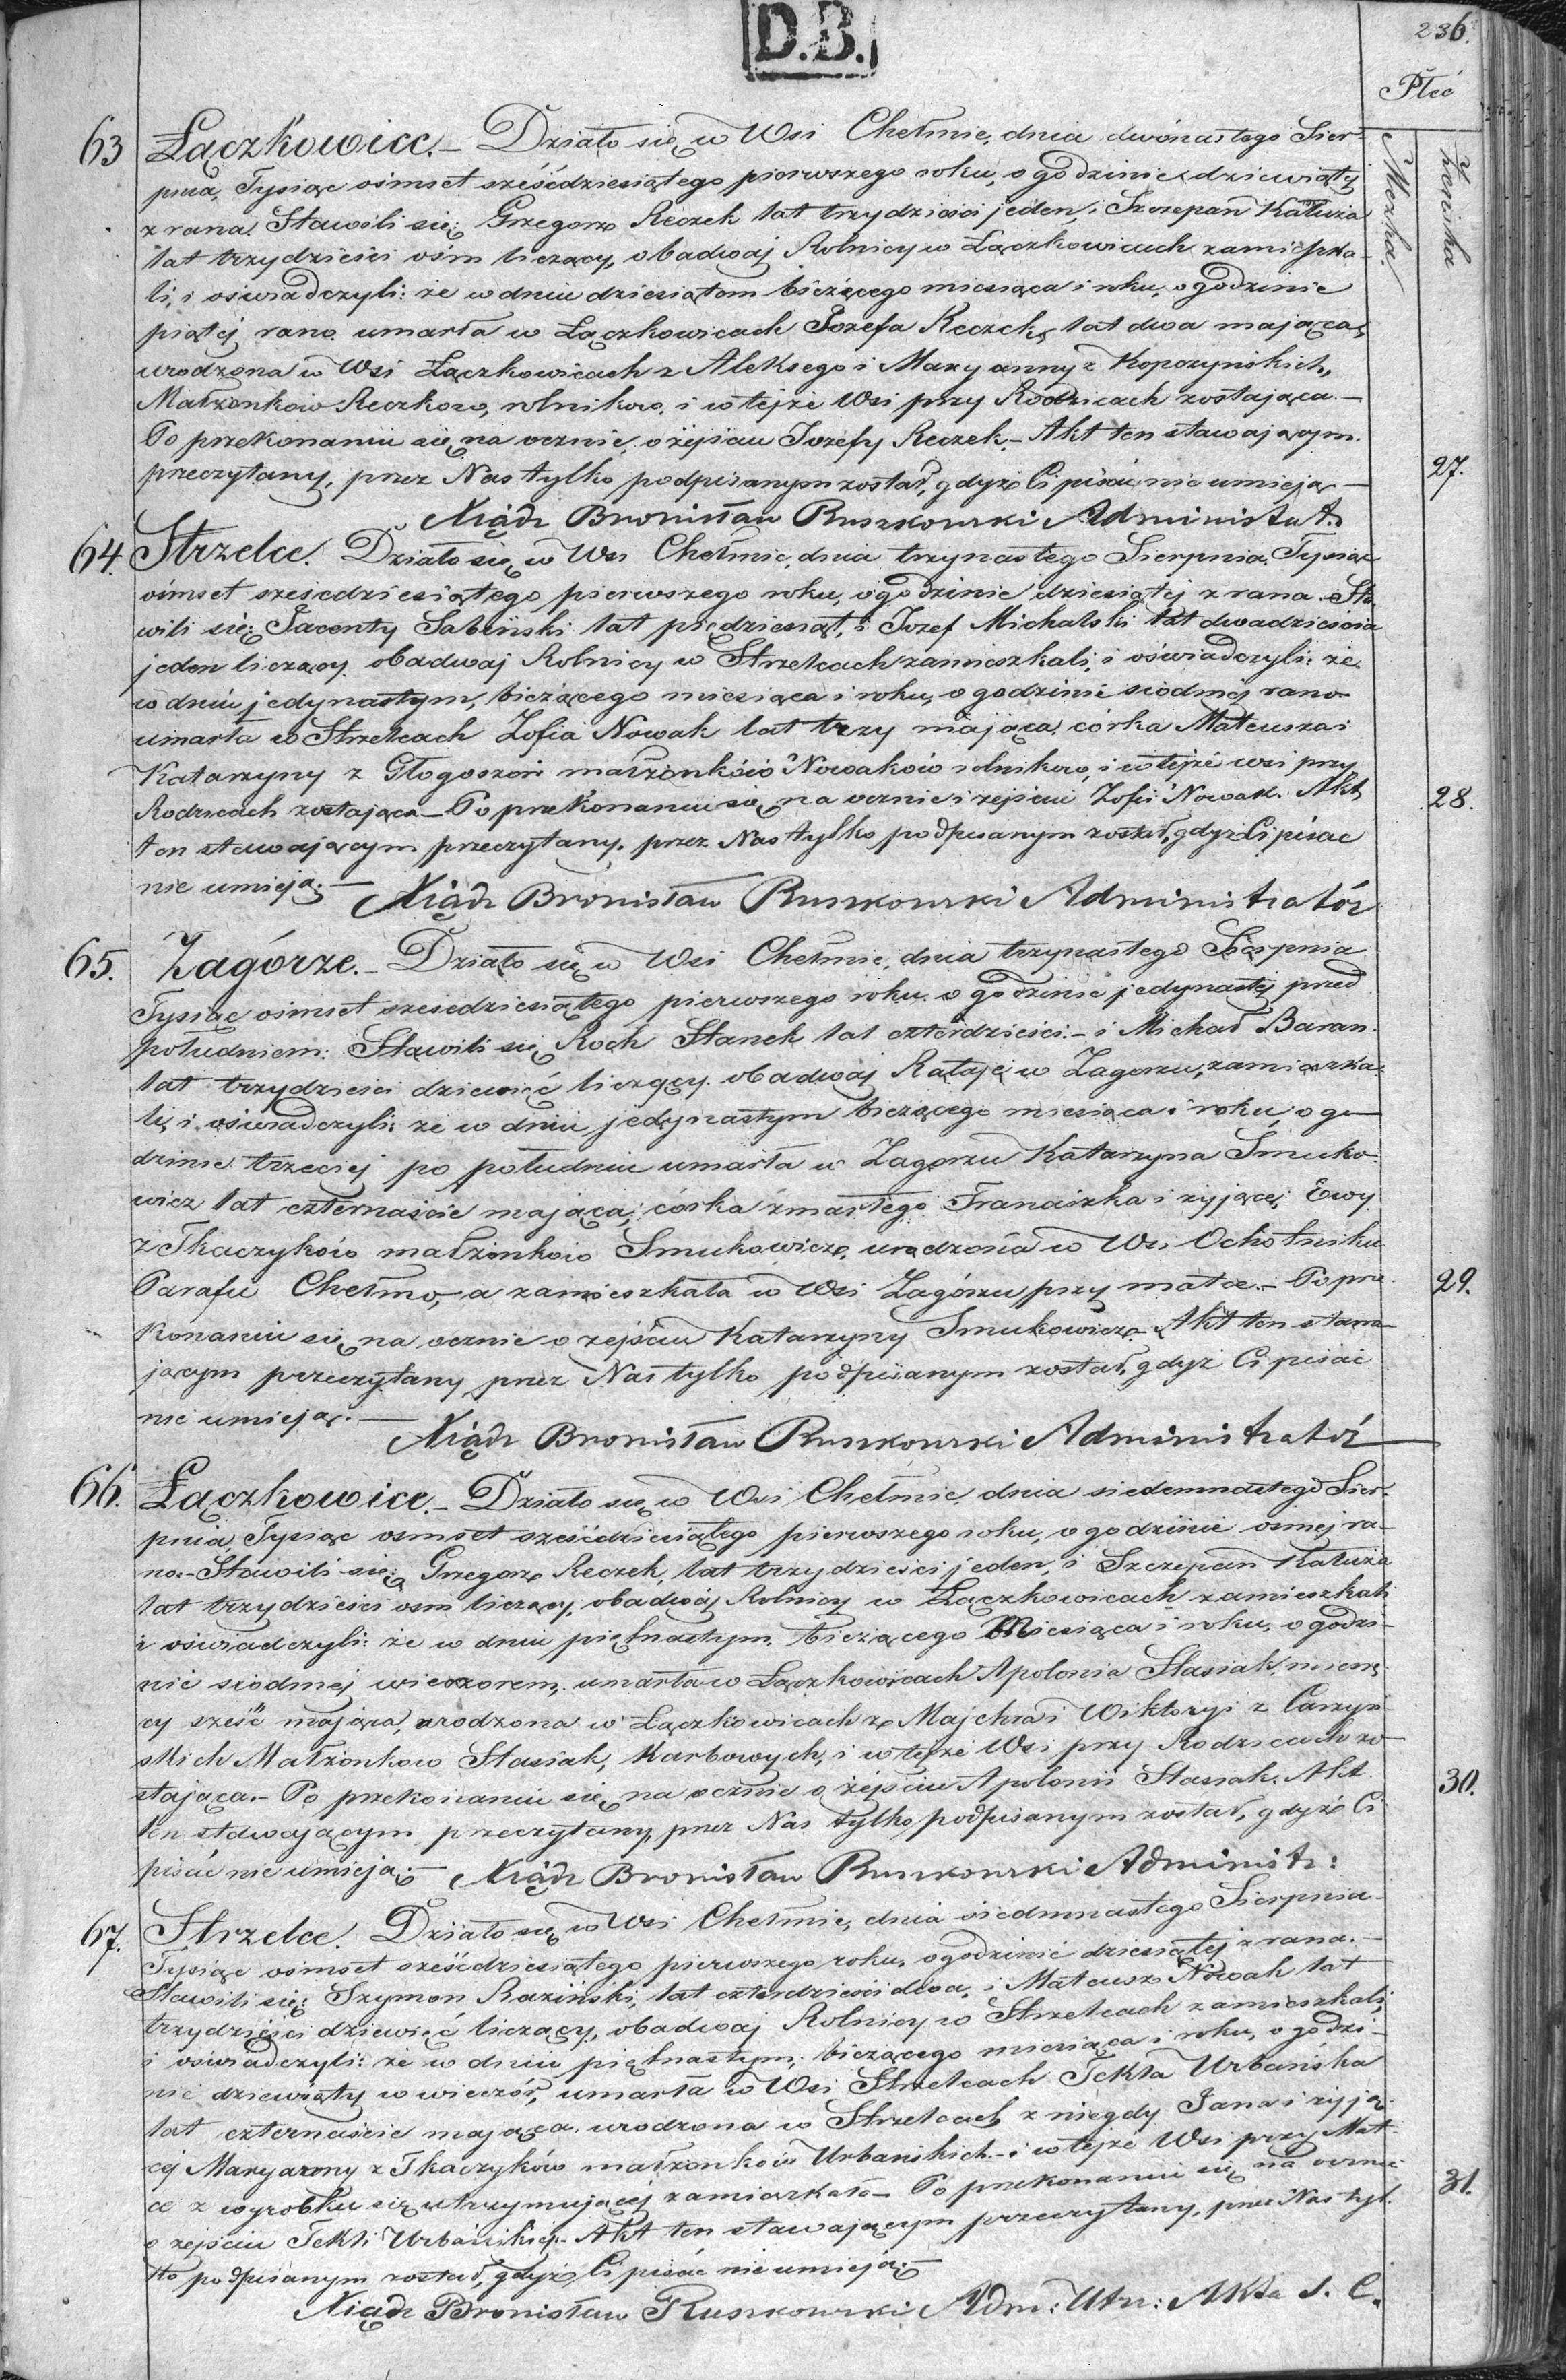 D.B.
236.
Płeć
Męzka.
Żeńska
63 Łączkowice. – Działo się w Wsi Chełmie, dnia dwónastego Sier-
pnia, Tysiąc ośmset sześćdziesiątego pierwszego roku, o godzinie dziewiątej
z rana. Stawili się: Grzegorz Reczek lat trzydzieści jeden, i Szczepan Kałuża
lat trzydzieści ośm liczący, obadwaj Rolnicy w Łączkowicach zamieszka-
li, i oświadczyli: że w dniu dziesiątem bieżącego miesiąca i roku, o godzinie
piątej rano umarła w Łączkowicach Jozefa Reczek, lat dwa mająca,
urodzona w Wsi Łączkowicach z Aleksego i Maryanny z Kopczynskich,
Małżonkow Reczkow, rolnikow, i w tejże Wsi przy Rodzicach zostająca. –
Po przekonaniu się na ocznie o zejsciu Jozefy Reczek. – Akt ten stawającym
przeczytany, przez Nas tylko podpisanym został, gdyż Ci pisać nie umieją –
27.
Xiądz Bronisław Ruszkowski Administrat.
64. Strzelce. Działo się w Wsi Chełmie, dnia trzynastego Sierpnia, Tysiąc
ośmset sześcdziesiątego pierwszego roku, o godzinie dziesiątej z rana. Sta-
wili się: Jacenty Sabiński lat piędziesiąt, i Jozef Michalski lat dwadziescia
jeden liczący, obadwaj Rolnicy w Strzelcach zamieszkali, i oświadczyli: że
w dniu jedynastym, bieżącego miesiąca i roku, o godzinie siódmej rano
umarła w Strzelcach Zofia Nowak lat trzy mająca, córka Mateusza i
Katarzyny z Głogoszów małżonków Nowaków rolnikow, i w tejże wsi przy
Rodzicach zostająca – Po przekonaniu się na ocznie i zejsciu Zofii Nowak. Akt
28.
ten stawającym przeczytany, przez Nas tylko podpisanym został, gdyż Ci pisac
nie umieją. – Xiądz Bronisław Ruszkowski Administratór
65. Zagórze. – Działo się w Wsi Chełmie, dnia trzynastego Sierpnia
Tysiąc ośmset szescdziesiątego pierwszego roku, o godzinie jedynastej przed
południem: Stawili się Roch Stanek lat czterdzieści. – i Michał Baran
lat trzydzieści dziewięć liczący, obadwaj Rataje w Zagorzu, zamieszka-
li, i oświadczyli: że w dniu jedynastym bieżącego miesiąca i roku, o go-
dzinie trzeciej po południu umarła w Zagorzu Katarzyna Smuko-
wicz lat czternaście mająca, córka zmarłego Franciszka i żyjącej Ewy
z Tkaczyków małżonków Smukowicz, urodzona w Wsi Ochotniku
Parafii Chełmo, a zamieszkała w Wsi Zagórzu przy matce. – Po prze-
29.
konaniu się na ocznie o zejściu Katarzyny Smukowicz. – Akt ten stawa-
jącym przeczytany przez Nas tylko podpisanym został, gdyż Ci pisać
nie umieją. –
Xiądz Bronisław Ruszkowski Administratór
66. Łączkowice. – Działo się w Wsi Chełmie, dnia siedemnastego Sier-
pnia, Tysiąc osmset sześćdziesiątego pierwszego roku, o godzinie osmej ra-
no. – Stawili się: Grzegorz Reczek, lat trzydzieści jeden, i Szczepan Kałuża
lat trzydzieści osm liczący, obadwaj Rolnicy w Łączkowicach zamieszkali
i oświadczyli: że w dniu piętnastym, bieżącego Miesiąca i roku, o godzi-
nie siodmej wieczorem, umarła w Łączkowicach Apolonia Stasiak, miesię-
cy sześć mająca, urodzona w Łączkowicach z Majchra i Wiktoryi z Carzyn-
skich Małżonkow Stasiak, Karbowych, i w tejże Wsi przy Rodzicach zo-
stająca. – Po przekonaniu się na ocznie o zejściu Apolonii Stasiak. Akt
30.
ten stawającym przeczytany, przez Nas tylko podpisanym został, gdyż Ci
pisać nie umieją. – Xiądz Bronisław Ruszkowski Administr:
67. Strzelce. Działo się w Wsi Chełmie, dnia siedmnastego Sierpnia
Tysiąc ośmset sześćdziesiątego pierwszego roku, o godzinie dziesiątej z rana. –
Stawili się: Szymon Raziński, lat czterdzieści dwa, i Mateusz Nowak lat
trzydzieści dziewięć liczący, obadwaj Rolnicy w Strzelcach zamieszkali,
i oświadczyli: że w dniu piętnastym, bieżącego miesiąca i roku, o godzi-
nie dziewiąty w wieczór, umarła w Wsi Strzelcach Tekla Urbańska
lat czternaście mająca, urodzona w Strzelcach z niegdy Jana i żyją-
cej Maryanny z Tkaczyków małżonków Urbańskich – i w tejże Wsi przy Mat-
ce z wyrobku się utrzymującej zamieszkała – Po przekonaniu się na ocznie
31.
o zejściu Tekli Urbańskiej. – Akt ten stawającym przeczytany, przez Nas tyl-
ko podpisanym został, gdyż Ci pisać nie umieją. –
Xiądz Bronisław Ruszkowski Adm: Utrz: Akta S. C.